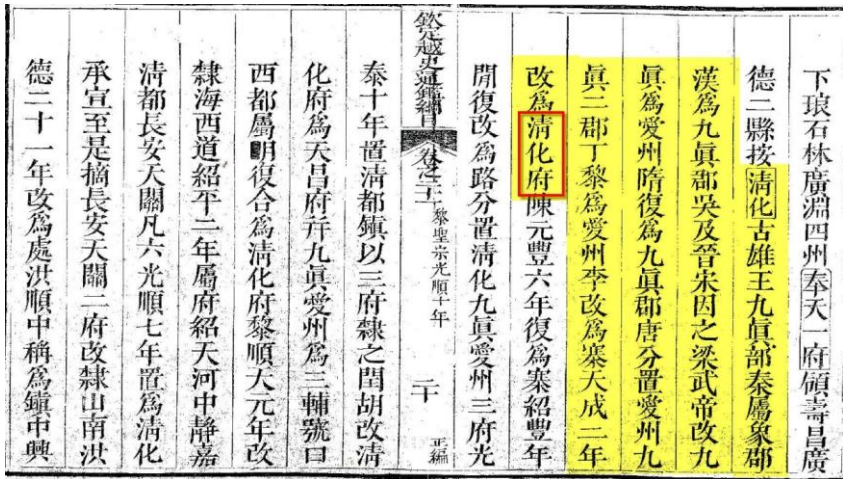 下琅石林廣淵四州奉天一府領壽昌廣
德二縣按清化古雄王九眞部秦屬象郡
漢爲九眞郡吳及晉宋因之梁武帝改九
眞爲愛州隋復爲九眞郡唐分置愛州九
眞二郡丁黎爲愛州李改爲寨大成二年
改爲清化府陳元豐六年復爲寨紹豐年
閒復改爲路分置清化九眞愛州三府光
欽定越史通鑑綱目 卷之二十一 黎聖宗光順十年 二十 正編
泰十年置清都鎭以三府隸之閏胡改清
化府爲天昌府幷九眞愛州爲三輔號曰
西都屬明復合爲清化府黎順天元年改
隸海西道紹平二年屬府紹天河中靜嘉
清都長安天關凡六光順七年置爲清化
承宣至是摘長安天關二府改隸山南洪
德二十一年改爲處洪順中稱爲鎭中興